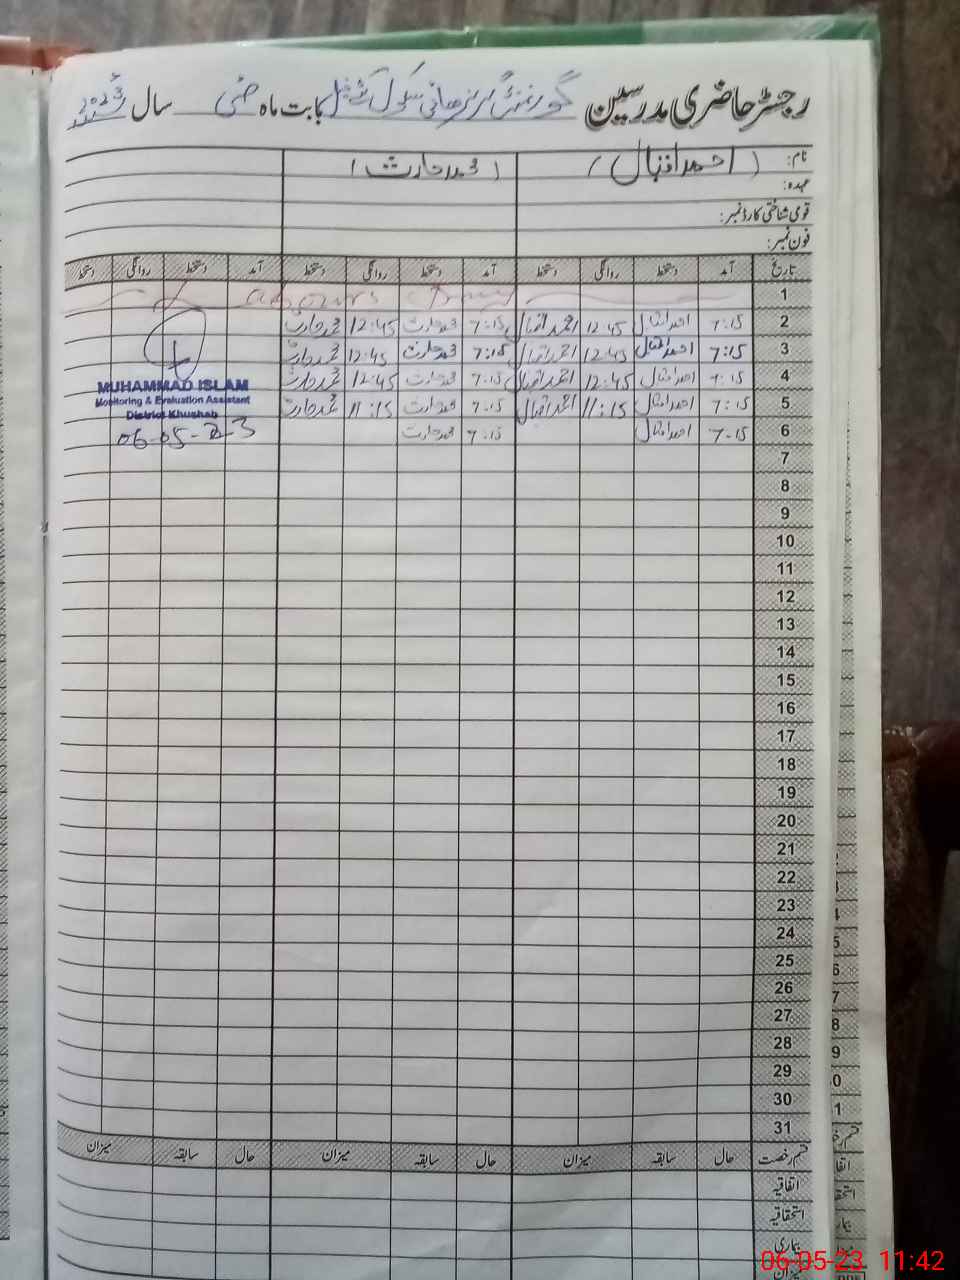 رجسٹر حاضری مدرسین گورنمنٹ سکول بابت ماہ مئی سال 2023
نام: (احمد اقبال) (محمد حارث)
عہدہ:
قومی شناختی کارڈ نمبر:
فون نمبر:
تاریخ آمد دستخط روانگی دستخط آمد دستخط روانگی دستخط آمد دستخط روانگی دستخط
1
2 7:15 احمد اقبال 12:45 احمد اقبال 7:15 محمد حارث 12:45 محمد حارث
3 7:15 احمد اقبال 12:45 احمد اقبال 7:15 محمد حارث 12:45 محمد حارث
4 7:15 احمد اقبال 12:45 احمد اقبال 7:15 محمد حارث 12:45 محمد حارث
MUHAMMAD ISLAM
Monitoring & Evaluation Assistant
District Khushab
5 7:15 احمد اقبال 11:15 احمد اقبال 7:15 محمد حارث 11:15 محمد حارث
6 7-15 احمد اقبال 7:15 محمد حارث
06-05-23
7
8
9
10
11
12
13
14
15
16
17
18
19
20
21
22
23
24
25
26
27
28
29
30
31
قسم رخصت حال سابقہ میزان حال سابقہ میزان حال سابقہ میزان
اتفاقیہ
استحقاقیہ
بیماری
میزان
06-05-23 11:42